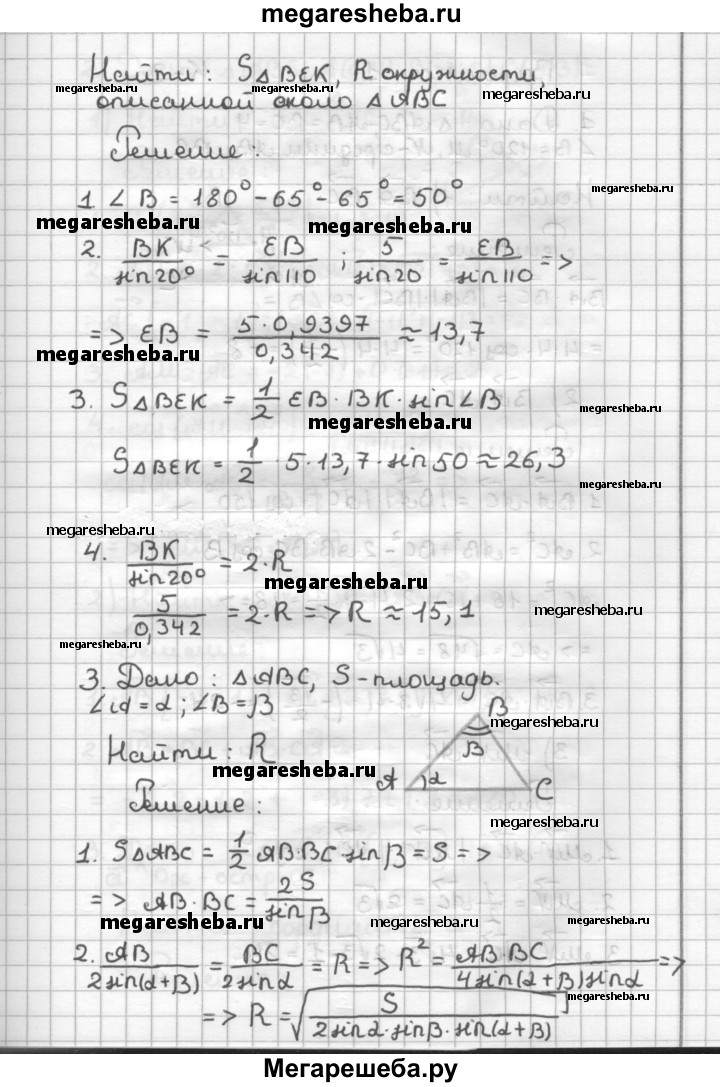 megaresheba.ru
Найти: S△BEK, R окружности,
megaresheba.ru megaresheba.ru
описанной около △ABC megaresheba.ru
Решение:
1. ∠B = 180° - 65° - 65° = 50° megaresheba.ru
megaresheba.ru megaresheba.ru
2. BK/sin20° = EB/sin110 ; 5/sin20 = EB/sin110 =>
=> EB = 5·0,9397/0,342 ≈ 13,7
megaresheba.ru megaresheba.ru
3. S△BEK = 1/2 EB·BK·sin∠B
megaresheba.ru megaresheba.ru
S△BEK = 1/2 · 5·13,7·sin50 ≈ 26,3
megaresheba.ru
4. BK/sin20° = 2·R
megaresheba.ru
5/0,342 = 2·R => R ≈ 15,1 megaresheba.ru
megaresheba.ru
3. Дано: △ABC, S-площадь.
∠d = α; ∠B = β B
megaresheba.ru
Найти: R β
megaresheba.ru A α C
Решение:
megaresheba.ru
1. S△ABC = 1/2 AB·BC sinβ = S =>
=> AB·BC = 2S/sinβ
megaresheba.ru megaresheba.ru megaresheba.ru
2. AB/2sin(α+β) = BC/2sinα = R => R² = AB·BC/4sin(α+β)sinα =>
megaresheba.ru
=> R = √S/2sinα·sinβ·sin(α+β)
Мегарешеба.ру